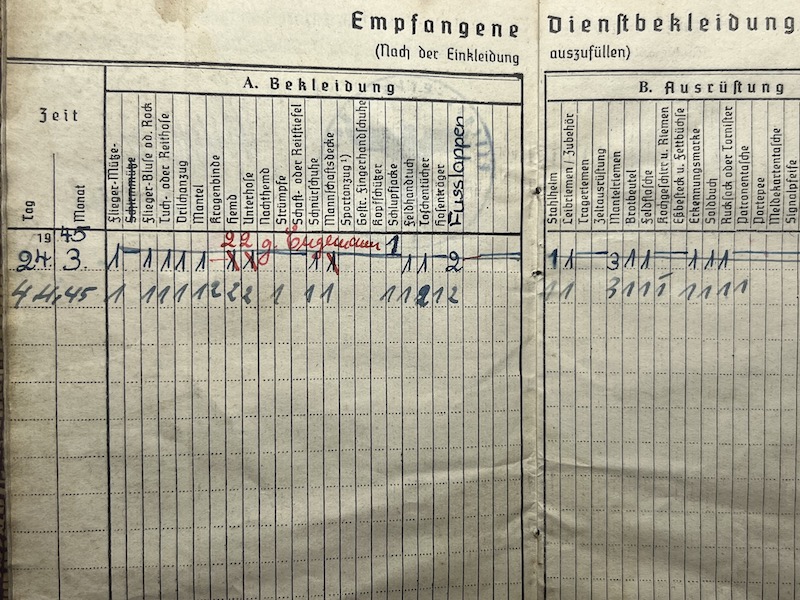 Empfangene Dienstbekleidung
(Nach der Einkleidung auszufüllen)
A. Bekleidung
B. Ausrüstung
Zeit
Tag
Monat
Flieger-Mütze-
Schirmmütze
Flieger-Bluse od. Rock
Tuch- oder Reithose
Drillichanzug
Mantel
Kragenbinde
Hemd
Unterhose
Nachthemd
Strümpfe
Schaft- oder Reitstiefel
Schnürschuhe
Mannschaftsdecke
Sportanzug ¹)
Gestr. Fingerhandschuhe
Kopfschützer
Schlupfjacke
Feldhandtuch
Taschentücher
Hosenträger
Fusslappen
Stahlhelm
Leibriemen / Zubehör
Tragriemen
Zeltausrüstung
Mantelriemen
Brotbeutel
Feldflasche
Kochgeschirr u. Riemen
Eßbesteck u. Fettbüchse
Erkennungsmarke
Soldbuch
Rucksack oder Tornister
Patronentasche
Portepee
Meldekartentasche
Signalpfeife
1945
2 2 g. 1
24. 3. 1 1 1 1 1 1 1 1 1 2 1 1 3 1 1 1 1 1
4 4. 45 1 1 1 1 1 2 2 2 1 1 1 1 1 2 1 2 1 1 3 1 1 1 1 1 1 1